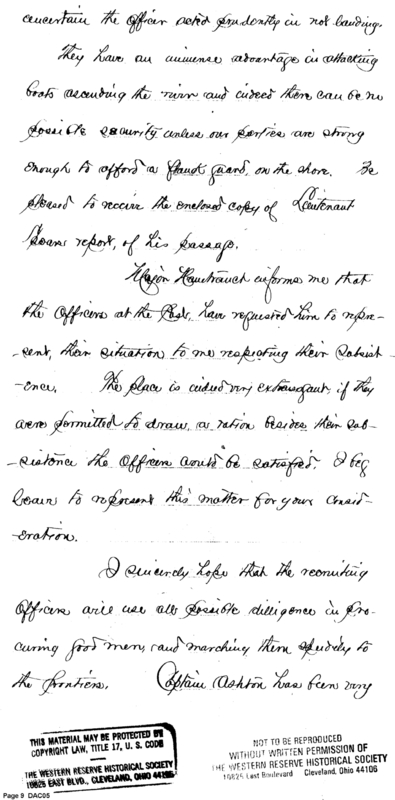 uncertain the Officer acted prudently in not landing.
They have an immense advantage in attacking
boats ascending the river and indeed there can be no
possible security unless our parties are strong
enough to afford a flank guard, on the shore. Be
pleased to receive the enclosed copy of Lieutenant
report, of his passage.
Major Hamtramck informs me that
the Officers at the Post, have requested him to repre-
-sent, their situation to me respecting their subsist-
-ence. The place is indeed very extravagant, if they
were permitted to draw, a ration besides their sub-
-sistence the Officers would be satisfied. I beg
leave to represent this matter for your consid-
-eration.
I sincerely hope that the recruiting
Officers will use all possible dilligence in pro-
curing good men, and marching them speedily to
the frontiers. Captain Ashton has been very
THIS MATERIAL MAY BE PROTECTED BY
COPYRIGHT LAW, TITLE 17, U. S. CODE
THE WESTERN RESERVE HISTORICAL SOCIETY
10825 EAST BLVD., CLEVELAND, OHIO 44106
NOT TO BE REPRODUCED
WITHOUT WRITTEN PERMISSION OF
THE WESTERN RESERVE HISTORICAL SOCIETY
10825 East Boulevard Cleveland, Ohio 44106
Page 9 DAC05